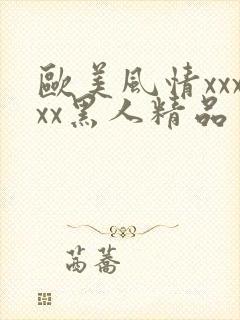 歐美風情xxx
xx黑人精品
芮蕎